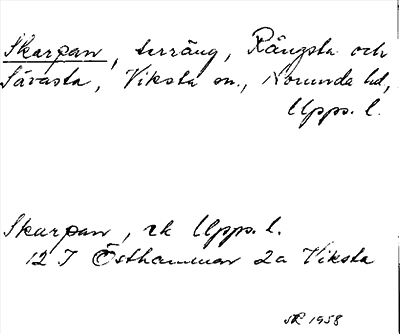 Skarpan, terräng, Rängsta och
Sävasta, Viksta sn., Norunda hd,
Upps. l.
Skarpan, rk Upps. l.
12 I Östhammar 2a Viksta
1958